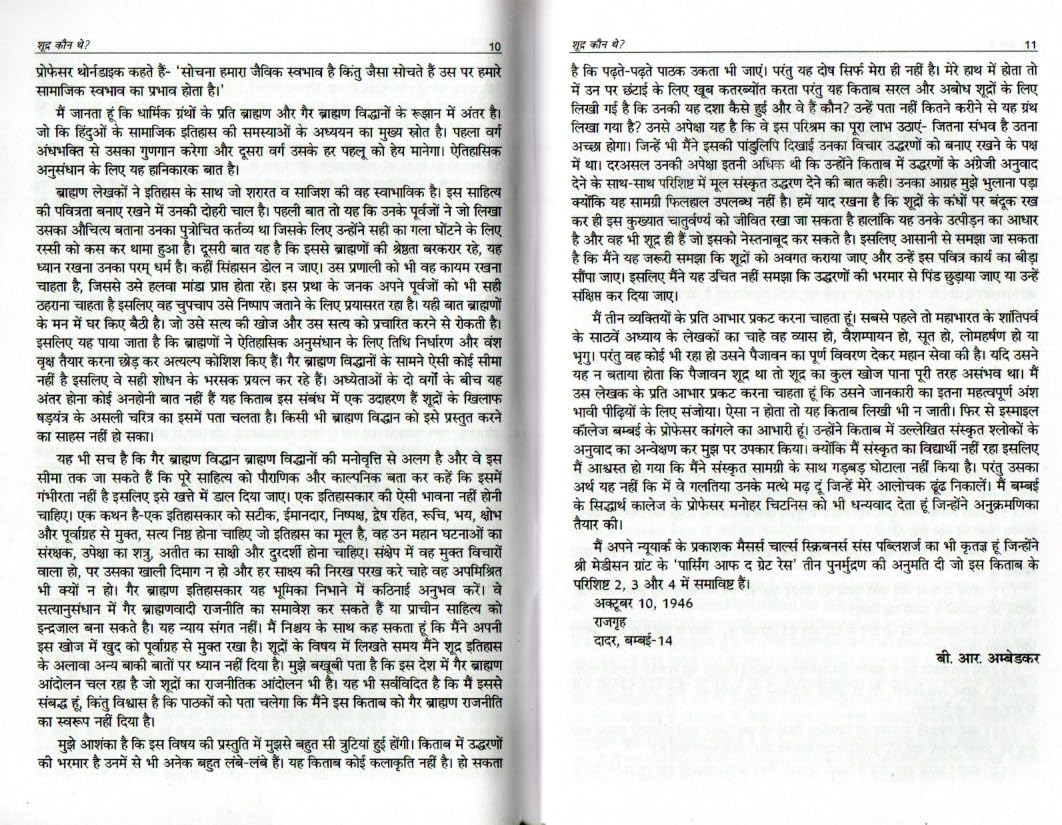 शूद्र कौन थे?
10
प्रोफेसर थोर्नडाइक कहते हैं- 'सोचना हमारा जैविक स्वभाव है किंतु जैसा सोचते हैं उस पर हमारे
सामाजिक स्वभाव का प्रभाव होता है।'
मैं जानता हूं कि धार्मिक ग्रंथों के प्रति ब्राह्मण और गैर ब्राह्मण विद्वानों के रूझान में अंतर है।
जो कि हिंदुओं के सामाजिक इतिहास की समस्याओं के अध्ययन का मुख्य स्रोत है। पहला वर्ग
अंधभक्ति से उसका गुणगान करेगा और दूसरा वर्ग उसके हर पहलू को हेय मानेगा। ऐतिहासिक
अनुसंधान के लिए यह हानिकारक बात है।
ब्राह्मण लेखकों ने इतिहास के साथ जो शरारत व साजिश की वह स्वाभाविक है। इस साहित्य
की पवित्रता बनाए रखने में उनकी दोहरी चाल है। पहली बात तो यह कि उनके पूर्वजों ने जो लिखा
उसका औचित्य बताना उनका पुत्रोचित कर्तव्य था जिसके लिए उन्होंने सही का गला घोंटने के लिए
रस्सी को कस कर थामा हुआ है। दूसरी बात यह है कि इससे ब्राह्मणों की श्रेष्ठता बरकरार रहे, यह
ध्यान रखना उनका परम् धर्म है। कहीं सिंहासन डोल न जाए। उस प्रणाली को भी वह कायम रखना
चाहता है, जिससे उसे हलवा मांडा प्राप्त होता रहे। इस प्रथा के जनक अपने पूर्वजों को भी सही
ठहराना चाहता है इसलिए वह चुपचाप उसे निष्पाप जताने के लिए प्रयासरत रहा है। यही बात ब्राह्मणों
के मन में घर किए बैठी है। जो उसे सत्य की खोज और उस सत्य को प्रचारित करने से रोकती है।
इसलिए यह पाया जाता है कि ब्राह्मणों ने ऐतिहासिक अनुसंधान के लिए तिथि निर्धारण और वंश
वृक्ष तैयार करना छोड़ कर अत्यल्प कोशिश किए हैं। गैर ब्राह्मण विद्वानों के सामने ऐसी कोई सीमा
नहीं है इसलिए वे सही शोधन के भरसक प्रयत्न कर रहे हैं। अध्येताओं के दो वर्गों के बीच यह
अंतर होना कोई अनहोनी बात नहीं हैं यह किताब इस संबंध में एक उदाहरण हैं शूद्रों के खिलाफ
षड़यंत्र के असली चरित्र का इसमें पता चलता है। किसी भी ब्राह्मण विद्वान को इसे प्रस्तुत करने
का साहस नहीं हो सका।
यह भी सच है कि गैर ब्राह्मण विद्वान ब्राह्मण विद्वानों की मनोवृत्ति से अलग है और वे इस
सीमा तक जा सकते हैं कि पूरे साहित्य को पौराणिक और काल्पनिक बता कर कहें कि इसमें
गंभीरता नहीं है इसलिए इसे खत्ते में डाल दिया जाए। एक इतिहासकार की ऐसी भावना नहीं होनी
चाहिए। एक कथन है-एक इतिहासकार को सटीक, ईमानदार, निष्पक्ष, द्वेष रहित, रूचि, भय, क्षोभ
और पूर्वाग्रह से मुक्त, सत्य निष्ठ होना चाहिए जो इतिहास का मूल है, वह उन महान घटनाओं का
संरक्षक, उपेक्षा का शत्रु, अतीत का साक्षी और दुरदर्शी होना चाहिए। संक्षेप में वह मुक्त विचारों
वाला हो, पर उसका खाली दिमाग न हो और हर साक्ष्य की निरख परख करे चाहे वह अपमिश्रित
भी क्यों न हो। गैर ब्राह्मण इतिहासकार यह भूमिका निभाने में कठिनाई अनुभव करें। वे
सत्यानुसंधान में गैर ब्राह्मणवादी राजनीति का समावेश कर सकते हैं या प्राचीन साहित्य को
इन्द्रजाल बना सकते है। यह न्याय संगत नहीं। मैं निश्चय के साथ कह सकता हूं कि मैंने अपनी
इस खोज में खुद को पूर्वाग्रह से मुक्त रखा है। शूद्रों के विषय में लिखते समय मैंने शूद्र इतिहास
के अलावा अन्य बाकी बातों पर ध्यान नहीं दिया है। मुझे बखूबी पता है कि इस देश में गैर ब्राह्मण
आंदोलन चल रहा है जो शूद्रों का राजनीतिक आंदोलन भी है। यह भी सर्वविदित है कि मैं इससे
संबद्ध हूं, किंतु विश्वास है कि पाठकों को पता चलेगा कि मैंने इस किताब को गैर ब्राह्मण राजनीति
का स्वरूप नहीं दिया है।
मुझे आशंका है कि इस विषय की प्रस्तुति में मुझसे बहुत सी त्रुटियां हुई होंगी। किताब में उद्धरणों
की भरमार है उनमें से भी अनेक बहुत लंबे-लंबे हैं। यह किताब कोई कलाकृति नहीं है। हो सकता
शूद्र कौन थे?
11
है कि पढ़ते-पढ़ते पाठक उकता भी जाएं। परंतु यह दोष सिर्फ मेरा ही नहीं है। मेरे हाथ में होता तो
में उन पर छंटाई के लिए खूब कतरब्योंत करता परंतु यह किताब सरल और अबोध शूद्रों के लिए
लिखी गई है कि उनकी यह दशा कैसे हुई और वे हैं कौन? उन्हें पता नहीं कितने करीने से यह ग्रंथ
लिखा गया है? उनसे अपेक्षा यह है कि वे इस परिश्रम का पूरा लाभ उठाएं- जितना संभव है उतना
अच्छा होगा। जिन्हें भी मैंने इसकी पांडुलिपि दिखाई उनका विचार उद्धरणों को बनाए रखने के पक्ष
में था। दरअसल उनकी अपेक्षा इतनी अधिक थी कि उन्होंने किताब में उद्धरणों के अंग्रेजी अनुवाद
देने के साथ-साथ परिशिष्ट में मूल संस्कृत उद्धरण देने की बात कही। उनका आग्रह मुझे भुलाना पड़ा
क्योंकि यह सामग्री फिलहाल उपलब्ध नहीं है। हमें याद रखना है कि शूद्रों के कंधों पर बंदूक रख
कर ही इस कुख्यात चातुर्वर्ण्य को जीवित रखा जा सकता है हालांकि यह उनके उत्पीड़न का आधार
है और वह भी शूद्र ही हैं जो इसको नेस्तनाबूद कर सकते है। इसलिए आसानी से समझा जा सकता
है कि मैंने यह जरूरी समझा कि शूद्रों को अवगत कराया जाए और उन्हें इस पवित्र कार्य का बीड़ा
सौंपा जाए। इसलिए मैंने यह उचित नहीं समझा कि उद्धरणों की भरमार से पिंड छुड़ाया जाए या उन्हें
संक्षिप्त कर दिया जाए।
मैं तीन व्यक्तियों के प्रति आभार प्रकट करना चाहता हूं। सबसे पहले तो महाभारत के शांतिपर्व
के साठवें अध्याय के लेखकों का चाहे वह व्यास हो, वैशम्पायन हो, सूत हो, लोमहर्षण हो या
भृगु। परंतु वह कोई भी रहा हो उसने पैजावन का पूर्ण विवरण देकर महान सेवा की है। यदि उसने
यह न बताया होता कि पैजावन शूद्र था तो शूद्र का कुल खोज पाना पूरी तरह असंभव था। मैं
उस लेखक के प्रति आभार प्रकट करना चाहता हूं कि उसने जानकारी का इतना महत्वपूर्ण अंश
भावी पीढ़ियों के लिए संजोया। ऐसा न होता तो यह किताब लिखी भी न जाती। फिर से इस्माइल
कॉलेज बम्बई के प्रोफेसर कांगले का आभारी हूं। उन्होंने किताब में उल्लेखित संस्कृत श्लोकों के
अनुवाद का अन्वेक्षण कर मुझ पर उपकार किया। क्योंकि मैं संस्कृत का विद्यार्थी नहीं रहा इसलिए
मैं आश्वस्त हो गया कि मैंने संस्कृत सामग्री के साथ गड़बड़ घोटाला नहीं किया है। परंतु उसका
अर्थ यह नहीं कि में वे गलतिया उनके मत्थे मढ़ दूं जिन्हें मेरे आलोचक ढूंढ निकालें। मैं बम्बई
के सिद्धार्थ कालेज के प्रोफेसर मनोहर चिटनिस को भी धन्यवाद देता हूं जिन्होंने अनुक्रमणिका
तैयार की।
मैं अपने न्यूयार्क के प्रकाशक मैसर्स चार्ल्स स्क्रिबनर्स संस पब्लिशर्ज का भी कृतज्ञ हूं जिन्होंने
श्री मेडीसन ग्रांट के 'पासिंग आफ द ग्रेट रेस' तीन पुनर्मुद्रण की अनुमति दी जो इस किताब के
परिशिष्ट 2, 3 और 4 में समाविष्ट हैं।
अक्टूबर 10, 1946
राजगृह
दादर, बम्बई-14
बी. आर. अम्बेडकर